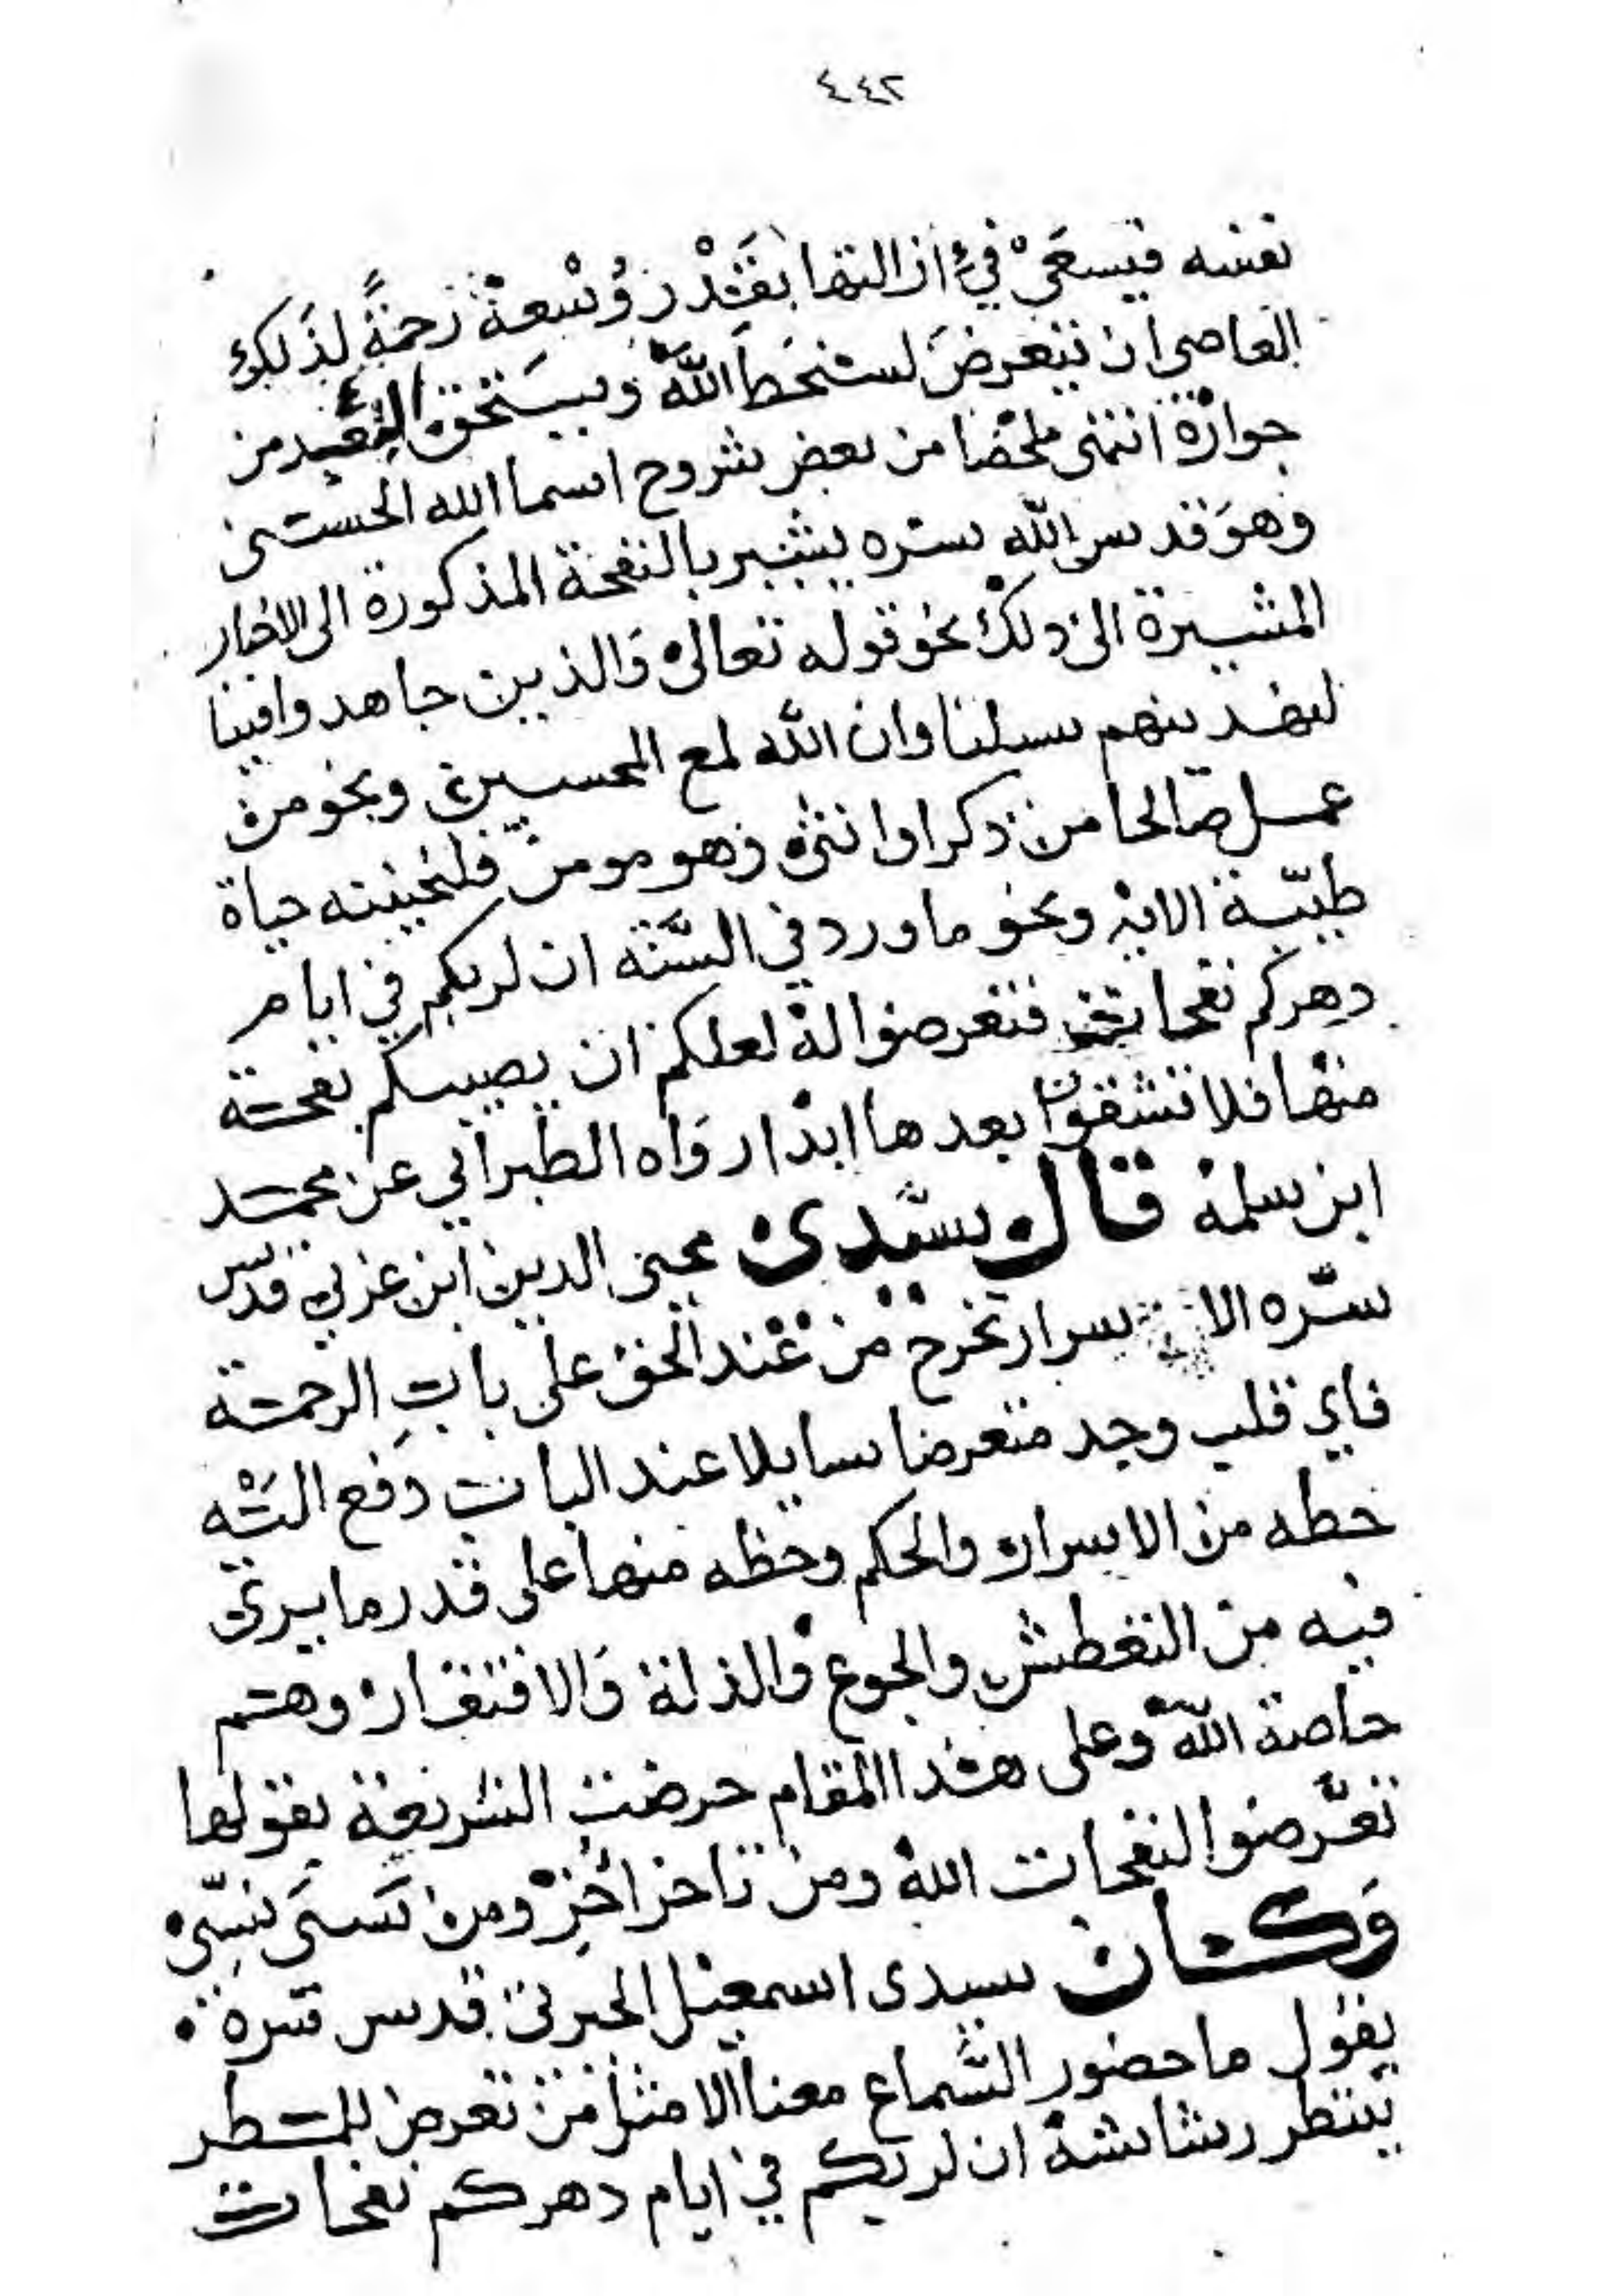 ٤٤٢
نفسه فيسعَى في ازالتها بقَدْر وُسْعهْ رحمةً لذَلك
العاصي ان يتعرضَ لسخَط اللّه ويستحق البُعد من
جواره انتهى ملخصا من بعض شروح اسما الله الحسنى
وهوَ قدس اللّه سره يشير بالنفحة المذكورة الى الاخبار
المشيرة الى ذلك نحو قوله تعالى وَالذين جاهدوا فينا
لنهدينهم سبلنا وان اللّه لمع المحسنين ونحو من
عمل صالحا من ذكر او انثى وهو مومن فلنحيينه حياة
طيّبة الاية ونحو ما ورد في السّنة ان لربكم في ايام
دهركم نفحات فتعرضوا له لعلكم ان يصيبكم نفحة
منها فلا تشقون بعدها ابدا روَاه الطبراني عن محمد
ابن سلمه قال سيّدى محيى الدين ابن عربي قدس
سّره الاسرار تخرج من عند الحق على بابِ الرحمة
فاي قلب وجد متعرضا سايلا عند الباب دفع اليْه
حظه من الاسرار والحكم وحظه منها على قدر ما يرى
فيه من التعطش والجوع والذلة وَالافتقار وهم
خاصة اللّه وعلى هذا المقام حرضت الشريعة بقولها
تعّرضوا لنفحات الله ومن تاخر اُخِرْ ومن نَسىَ نسّى
وَكان سيدى اسمعيل الجبرتى قدس سره
يقول ما حضور السَّماع معنا الا مثل من تعرض للمطر
ينتظر رشاشه ان لربكم في ايام دهركم نفحات